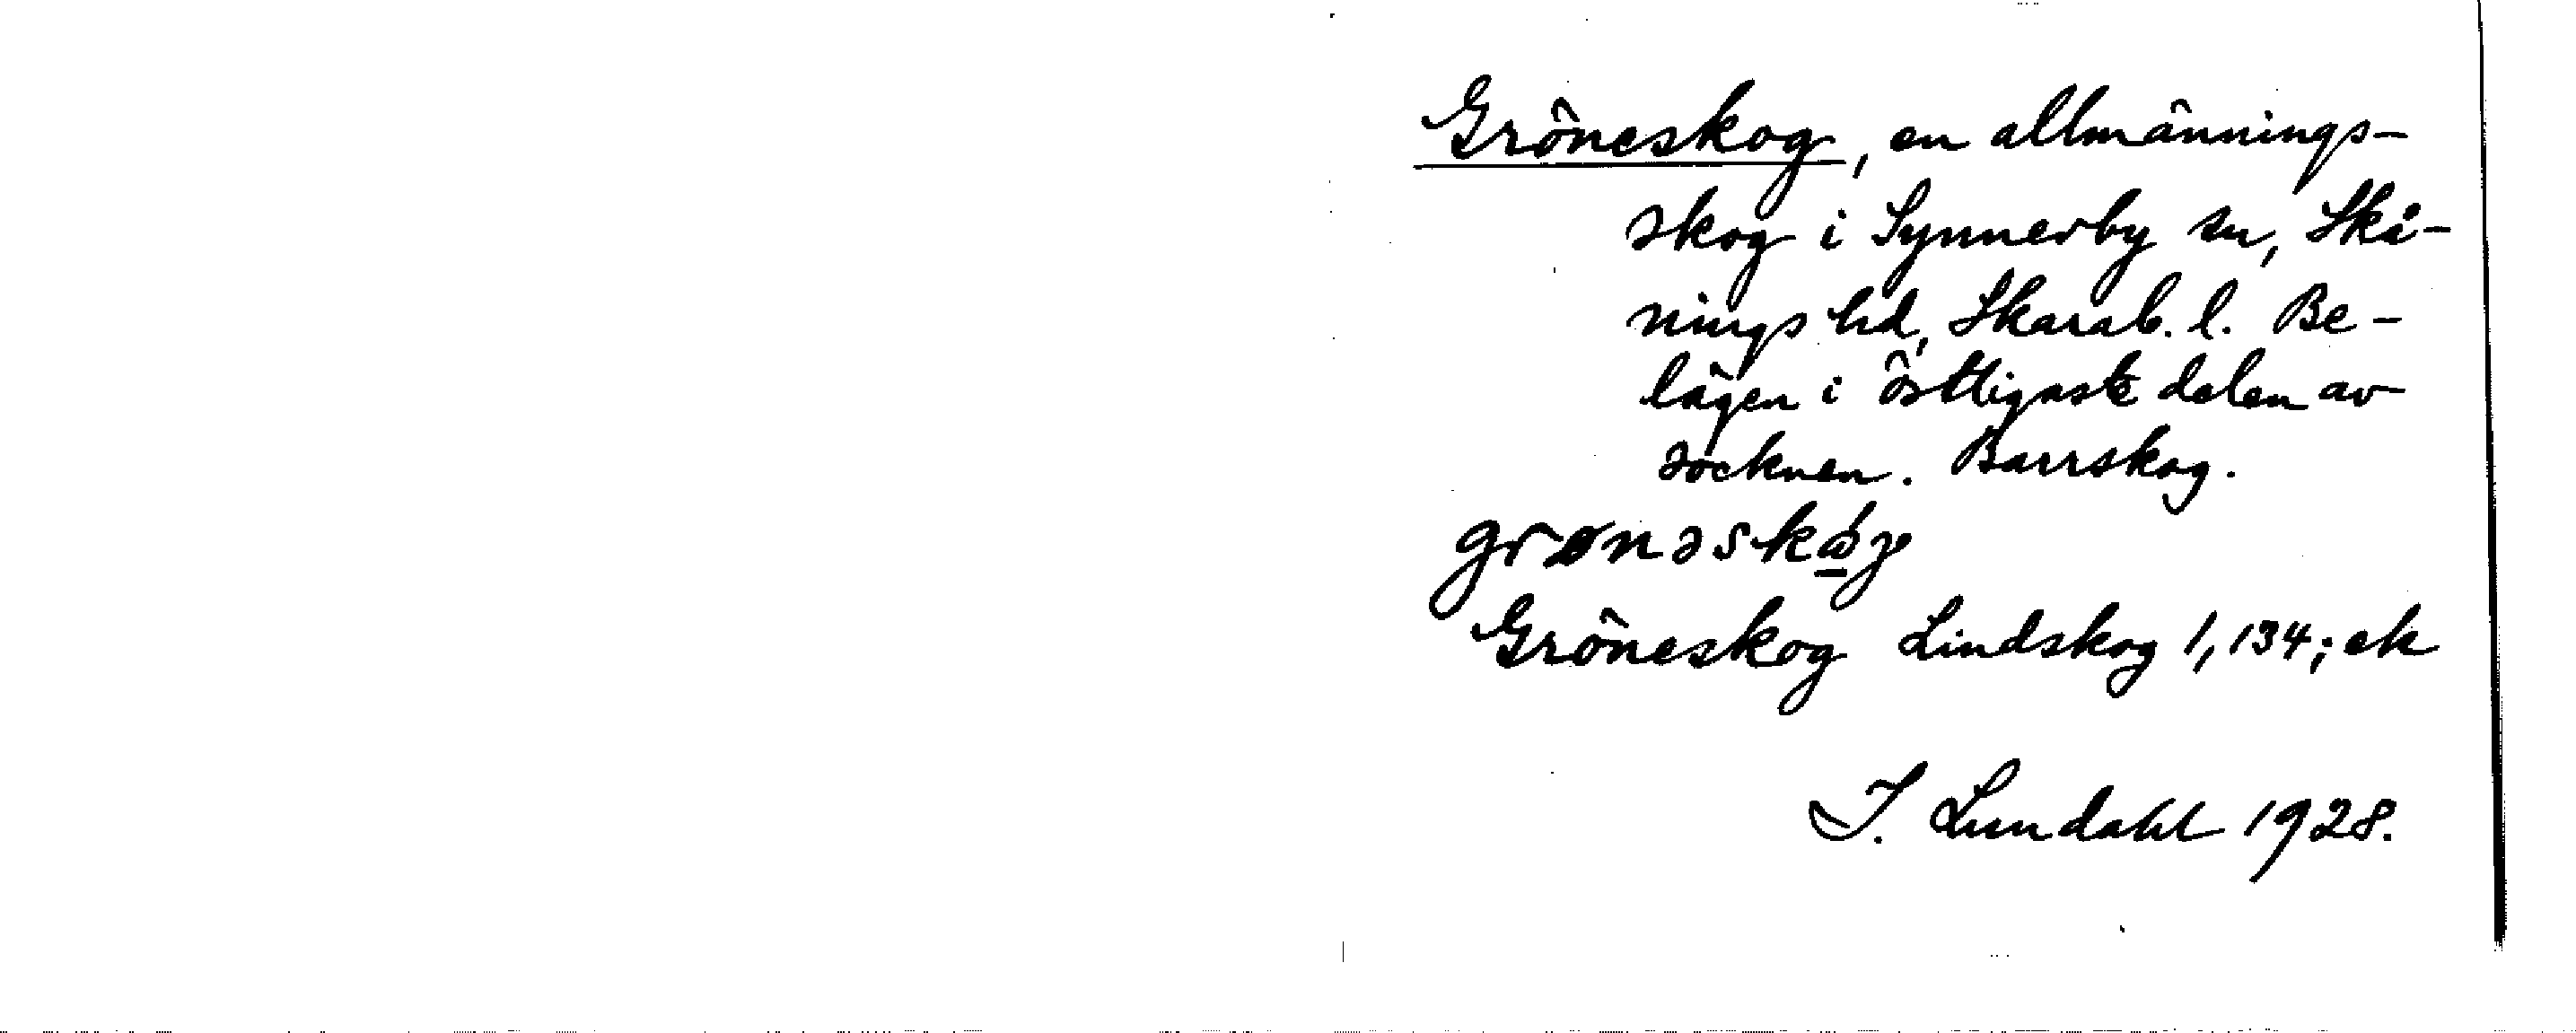 Gröneskog, en allmännings-
skog i Synnerby sn, Skå-
nings hd, Skarab. l. Be-
lägen i östligaste delen av
socknen. Barrskog.
grønəskώ̲ɡ
Gröneskog Lindskog 1, 134; ek
I. Lundahl 1928.